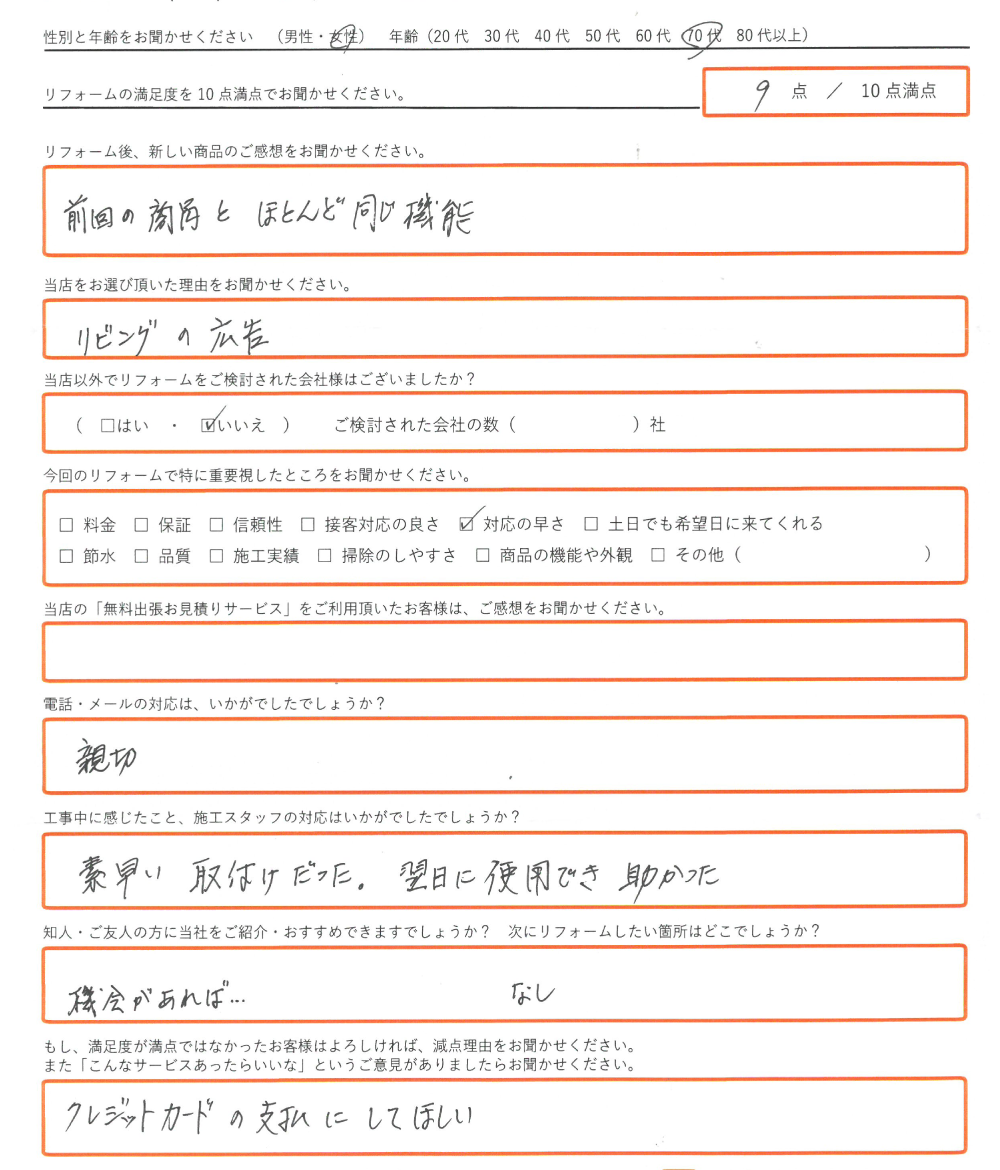 性別と年齢をお聞かせください （男性・女性） 年齢（20代 30代 40代 50代 60代 70代 80代以上）
リフォームの満足度を10点満点でお聞かせください。
9 点 ／ 10点満点
リフォーム後、新しい商品のご感想をお聞かせください。
前回の商品と ほとんど同じ機能
当店をお選び頂いた理由をお聞かせください。
リビングの広告
当店以外でリフォームをご検討された会社様はございましたか？
（ □はい ・ ☑いいえ ） ご検討された会社の数（ ）社
今回のリフォームで特に重要視したところをお聞かせください。
□ 料金 □ 保証 □ 信頼性 □ 接客対応の良さ ☑ 対応の早さ □ 土日でも希望日に来てくれる
□ 節水 □ 品質 □ 施工実績 □ 掃除のしやすさ □ 商品の機能や外観 □ その他（ ）
当店の「無料出張お見積りサービス」をご利用頂いたお客様は、ご感想をお聞かせください。
電話・メールの対応は、いかがでしたでしょうか？
親切
工事中に感じたこと、施工スタッフの対応はいかがでしたでしょうか？
素早い 取付けだった。 翌日に使用でき助かった
知人・ご友人の方に当社をご紹介・おすすめできますでしょうか？ 次にリフォームしたい箇所はどこでしょうか？
機会があれば… なし
もし、満足度が満点ではなかったお客様はよろしければ、減点理由をお聞かせください。
また「こんなサービスあったらいいな」というご意見がありましたらお聞かせください。
クレジットカードの支払にしてほしい